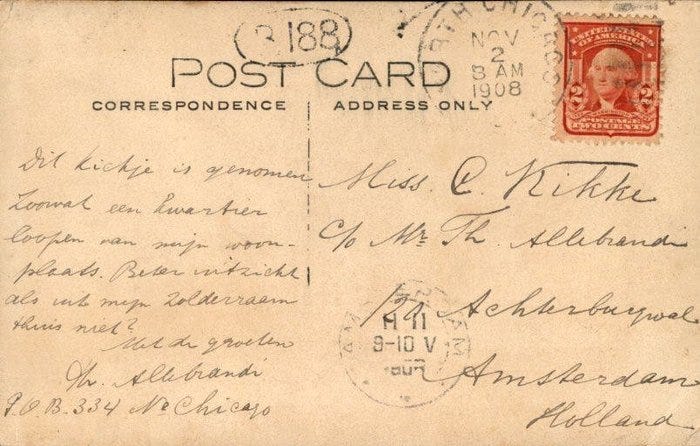 B 188
NORTH CHICAGO
NOV
2
8 AM
1908
UNITED STATES
OF AMERICA
2 2
POSTAGE
TWO CENTS
POST CARD
CORRESPONDENCE
ADDRESS ONLY
Dit kiekje is genomen
Zoowat een kwartier
loopen van mijn woon-
plaats. Beter uitzicht
als uit mijn zolderraam
thuis niet?
Met de groeten
Th. Allebrandi
P.O.B. 334 No Chicago
Miss. C. Kikke
c/o Mr. Th. Allebrandi
121 Achterburgwal
Amsterdam
Holland
11
9-10 V